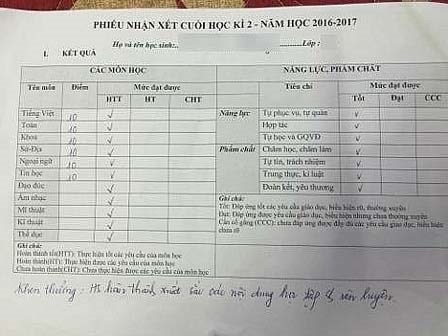 PHIẾU NHẬN XÉT CUỐI HỌC KÌ 2 - NĂM HỌC 2016-2017
Họ và tên học sinh:.. ..........Lớp :
I. KẾT QUẢ
CÁC MÔN HỌC NĂNG LỰC, PHẨM CHẤT
Tên môn Điểm Mức đạt được Tiêu chí Mức đạt được
HTT HT CHT Tốt Đạt CCC
Tiếng Việt 10 ✓ Năng lực Tự phục vụ, tự quản ✓
Toán 10 ✓ Hợp tác ✓
Khoa 10 ✓ Tự học và GQVĐ ✓
Sử-Địa 10 ✓ Phẩm chất Chăm học, chăm làm ✓
Ngoại ngữ 10 ✓ Tự tin, trách nhiệm ✓
Tin học 10 ✓ Trung thực, kỉ luật ✓
Đạo đức ✓ Đoàn kết, yêu thương ✓
Âm nhạc ✓ Ghi chú:
Mĩ thuật ✓ Tốt: Đáp ứng tốt các yêu cầu giáo dục, biểu hiện rõ, thường xuyên
Kĩ thuật ✓ Đạt: Đáp ứng được yêu cầu giáo dục, biểu hiện nhưng chưa thường xuyên
Thể dục ✓ Cần cố gắng (CCC): chưa đáp ứng được đầy đủ các yêu cầu giáo dục, biểu hiện chưa rõ
Ghi chú:
Hoàn thành tốt(HTT): Thực hiện tốt các yêu cầu của môn học
Hoàn thành(HT): Thực hiện được các yêu cầu của môn học
Chưa hoàn thành(CHT): Chưa thực hiện được các yêu cầu của môn học
Khen thưởng : Hs hoàn thành xuất sắc các nội dung học tập & rèn luyện.